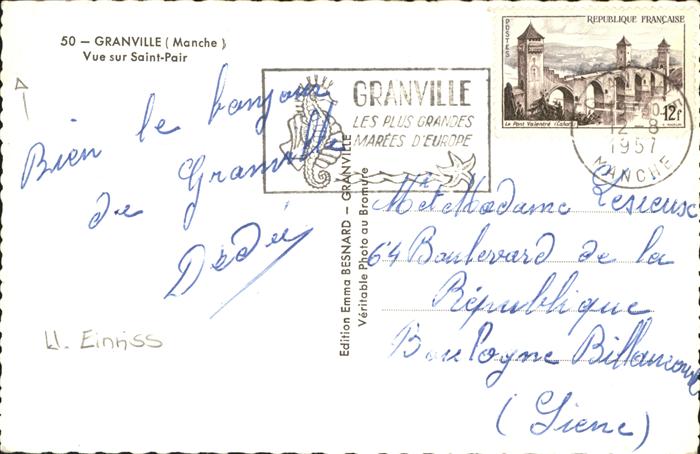 50 — GRANVILLE (Manche)
Vue sur Saint-Pair
Bien le bonjour
de Granville
Dédé
kl. Einriss
Edition Emma BESNARD — GRANVILLE
Véritable Photo au Bromure
GRANVILLE
LES PLUS GRANDES
MARÉES D'EUROPE
REPUBLIQUE FRANÇAISE
POSTES
12f
Le Pont Valentré (Cahors)
12-8
1957
MANCHE
Mr et Madame
64 Boulevard de la
République
Boulogne Billancourt